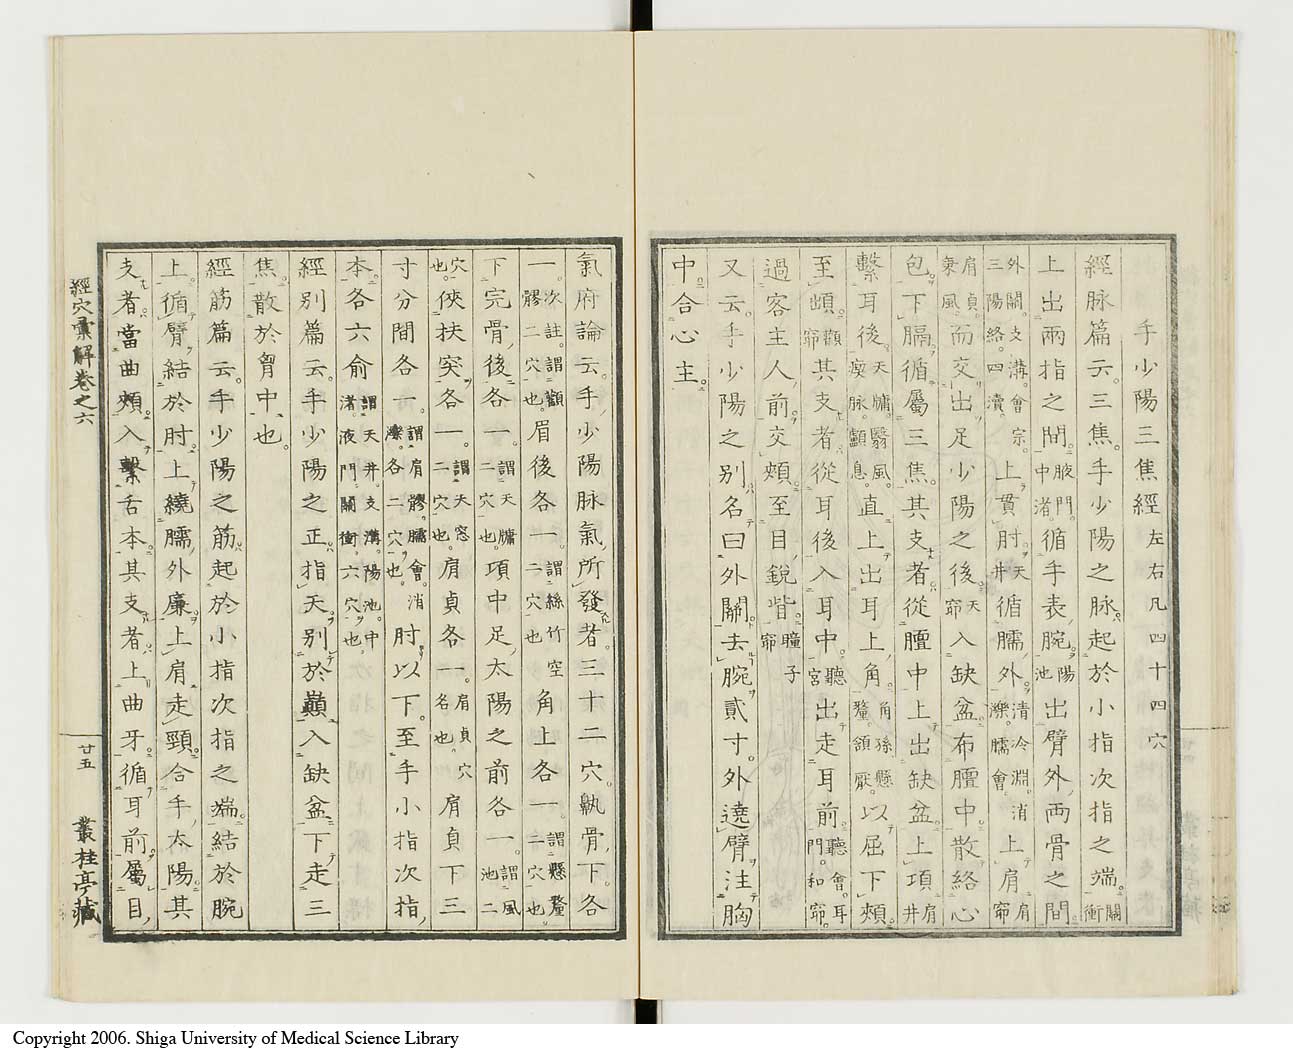 手少陽三焦經左右凡四十四穴
經脉篇云。三焦。手少陽之脉。起於小指次指之端。關衝
上出兩指之間。腋門。中渚。循手表腕。陽池出臂外。兩骨之間。
外關。支溝。會宗。三陽絡。四瀆。上貫肘。天井循臑外。清冷淵。消濼。臑會上肩肩窌
肩貞。秉風而交出足少陽之後。天窌入缺盆。布膻中。散絡心
包。下膈。循屬三焦。其支者。從膻中上出缺盆。上項。肩井
繫耳後。天牖。翳風。瘈脉。顱息。直上出耳上角。角孫。懸釐。頷厭。以屈下頰。
至䪼。顴窌其支者。從耳後入耳中。聽宮出走耳前。聽會。耳門。和窌。
過客主人前。交頰。至目銳眥。瞳子窌
又云。手少陽之別。名曰外關。去腕貳寸。外遶臂。注胸
中。合心主。
氣府論云。手少陽脉氣所發者。三十二穴。鼽骨下各
一。次註。謂顴髎二穴也。眉後各一。謂絲竹空二穴也角上各一。謂懸釐二穴也。
下完骨後各一。謂天牖二穴也。項中足太陽之前各一。謂風池二
穴也。俠扶突各一。謂天窓二穴也。肩貞各一。肩貞穴名也。肩貞下三
寸分間各一。謂肩髎。臑會。消濼。各二穴也。肘以下。至手小指次指
本。各六俞謂天井。支溝。陽池。中渚。液門。關衝。六穴也。
經別篇云。手少陽之正。指天。別於巔。入缺盆。下走三
焦。散於胷中也。
經筋篇云。手少陽之筋。起於小指次指之端。結於腕
上。循臂。結於肘。上繞臑外廉。上肩。走頸。合手太陽。其
支者。當曲頰。入繫舌本。其支者。上曲牙。循耳前。屬目
經穴彙解卷之六
廿五
叢桂亭藏
Copyright 2006. Shiga University of Medical Science Library